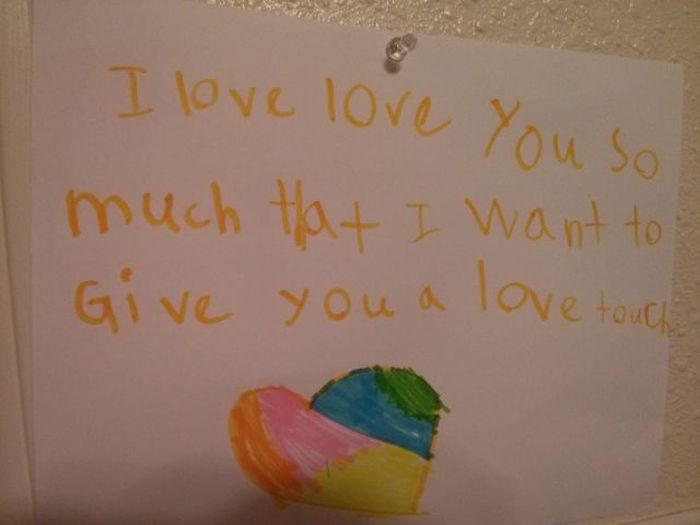 I love love you so
much that I want to
Give you a love touch